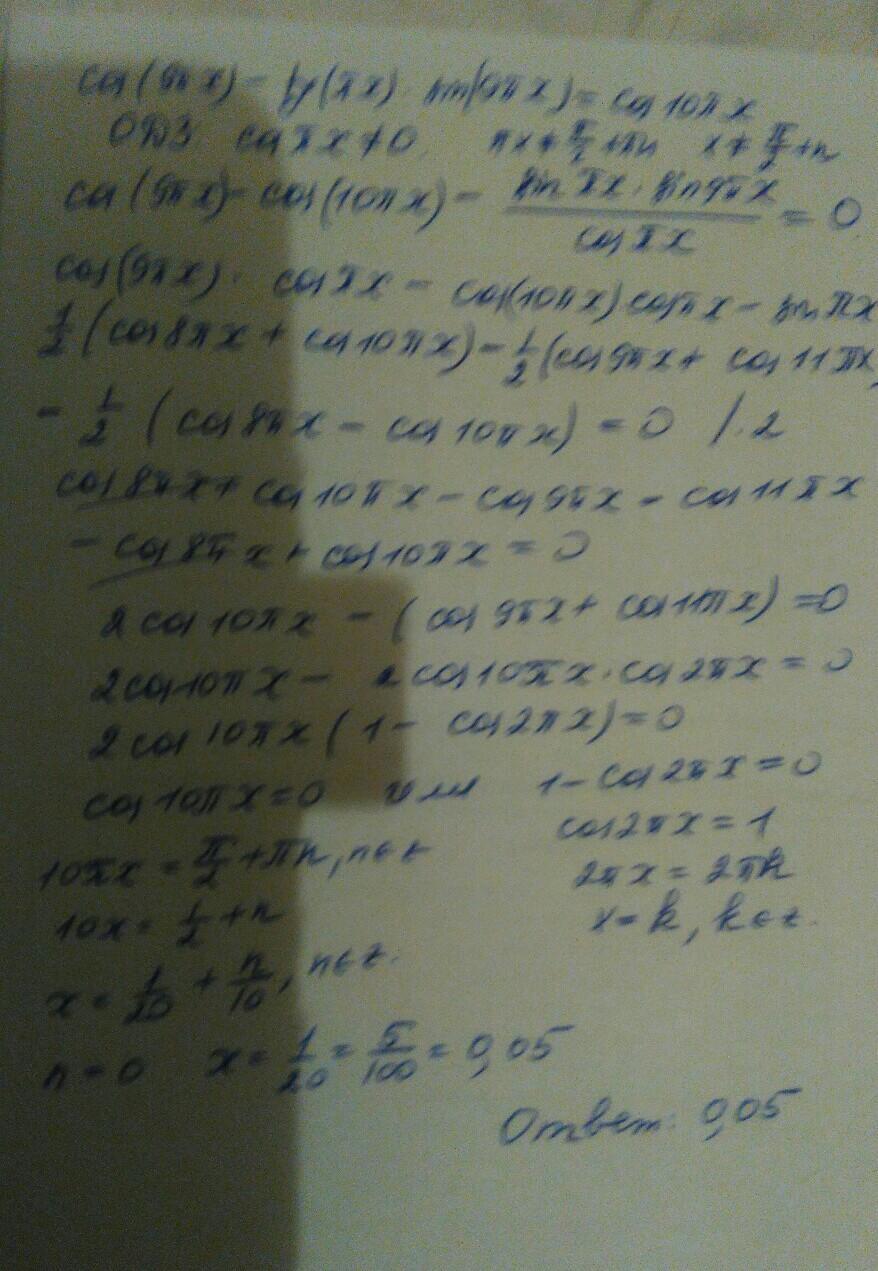 cos(9πx) - tg(πx) · sin(9πx) = cos 10πx
ОДЗ cos πx ≠ 0 πx ≠ π/2 + πn x ≠ π/2 + n
cos(9πx) - cos(10πx) - (sin πx · sin 9πx)/(cos πx) = 0
cos(9πx) · cos πx - cos(10πx) cos πx - sin πx
1/2 (cos 8πx + cos 10πx) - 1/2 (cos 9πx + cos 11πx)
- 1/2 (cos 8πx - cos 10πx) = 0 / · 2
cos 8πx + cos 10πx - cos 9πx - cos 11πx
- cos 8πx + cos 10πx = 0
2 cos 10πx - (cos 9πx + cos 11πx) = 0
2 cos 10πx - 2 cos 10πx · cos 2πx = 0
2 cos 10πx (1 - cos 2πx) = 0
cos 10πx = 0 или 1 - cos 2πx = 0
cos 2πx = 1
10πx = π/2 + πn, n ∈ z 2πx = 2πk
10x = 1/2 + n x = k, k ∈ z.
x = 1/20 + n/10, n ∈ z.
n = 0 x = 1/20 = 5/100 = 0,05
Ответ: 0,05